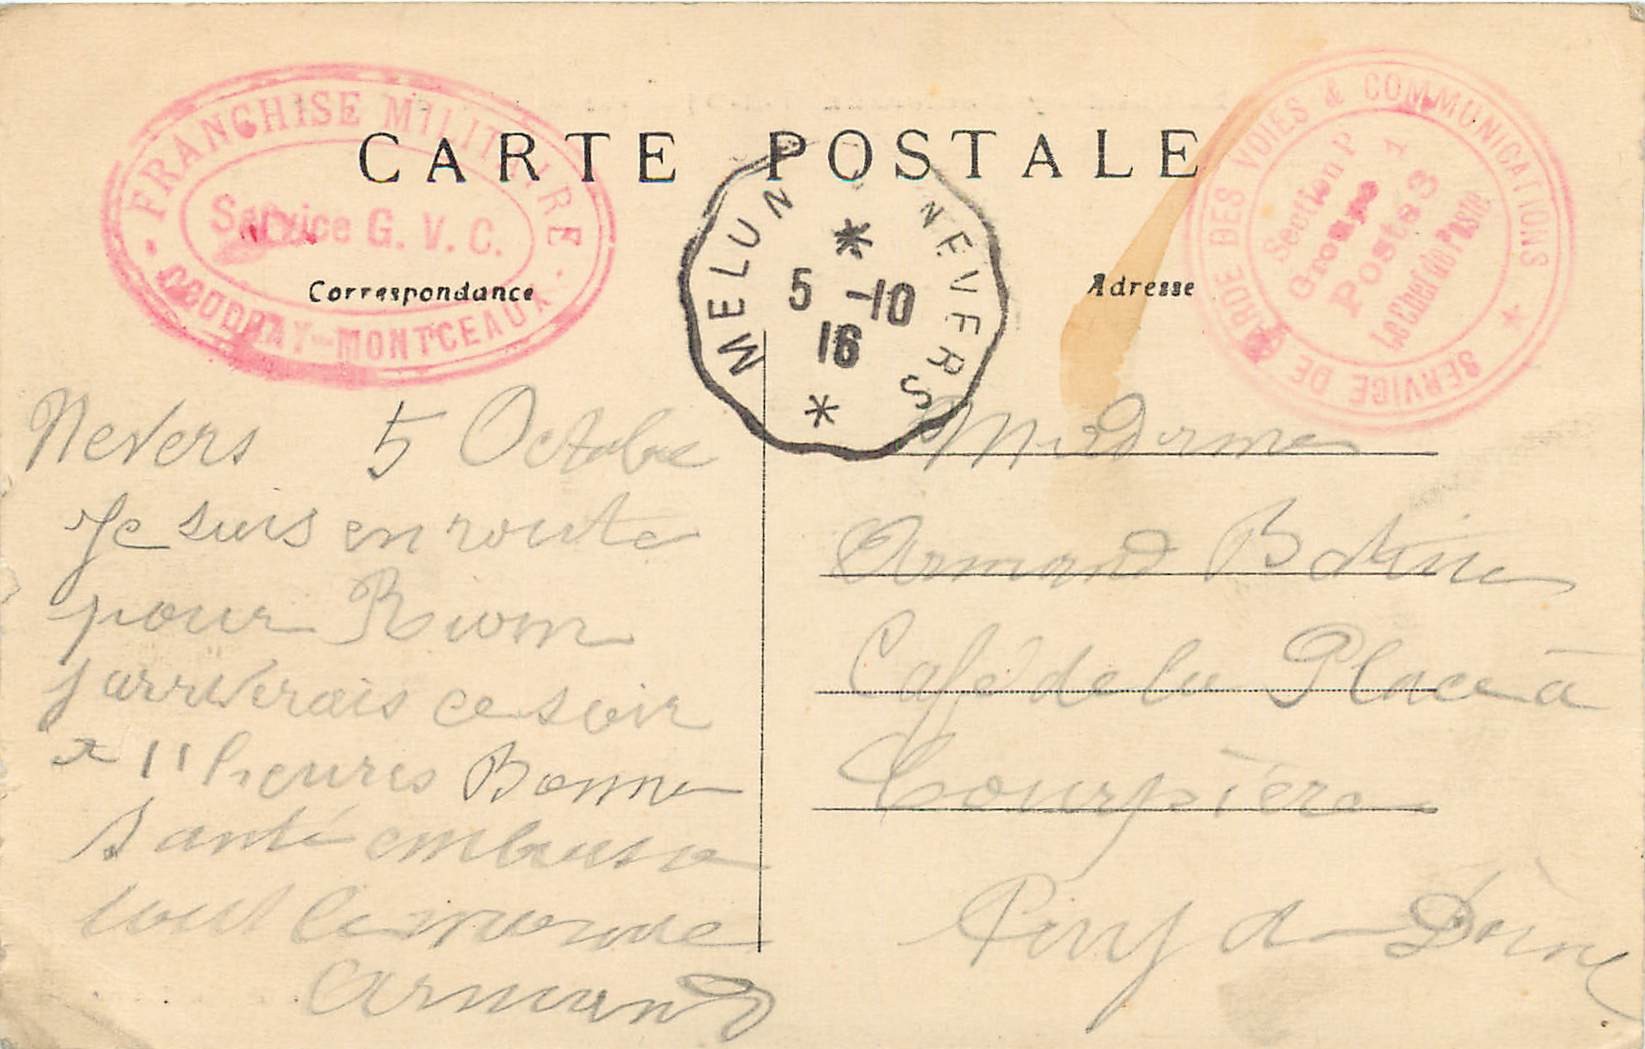 FRANCHISE MILITAIRE
Service G. V. C.
COUDRAY-MONTCEAUX
CARTE POSTALE
MELUN NEVERS
5 -10
16
SERVICE DE GARDE DES VOIES & COMMUNICATIONS
Section P
Groupe 1
Poste 3
Le Chef de Poste
Correspondance
Adresse
Nevers 5 Octobre
Je suis en route
pour Riom
j'arriverais ce soir
a 11 heures Bonne
santé embrasse
tout le monde
Armand
Madame
Armand
Café de la Place à
Courpière
Puy de Dôme